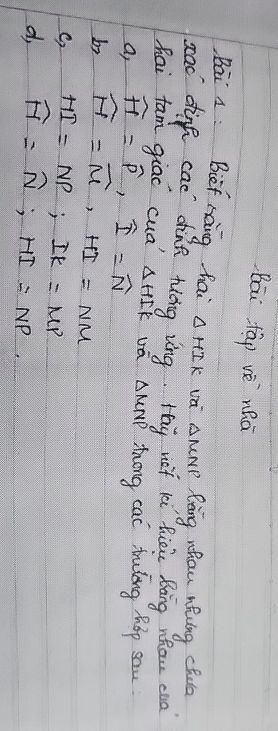 Bài tập về nhà
Bài 1: Biết rằng hai Δ HIK và Δ MNP bằng nhau nhưng chưa
xác định các đỉnh tương ứng. Hãy viết kí hiệu bằng nhau của
hai tam giác của Δ HIK và Δ MNP trong các trường hợp sau:
a, Ĥ = P̂, Î = N̂
b, Ĥ = M̂, HI = NM
c, HI = NP; IK = MP
d, Ĥ = N̂; HI = NP.